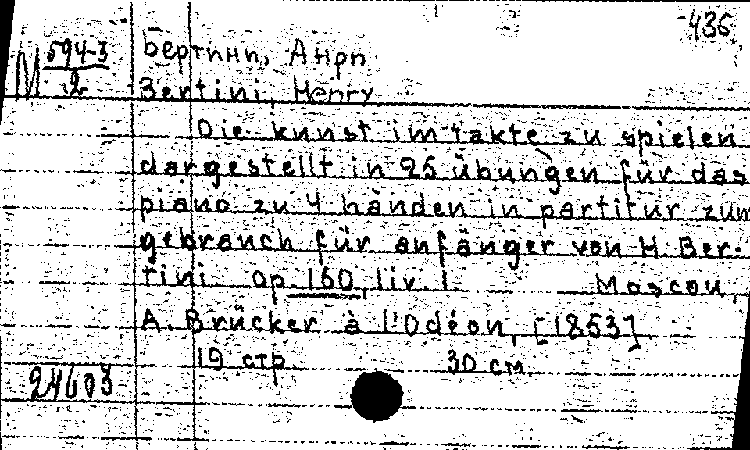 436
М 594-3 Бертини, Анри
2 Bertini, Henry
Die kunst im takte zu spielen
dargestellt in 25 übungen für das
piano zu 4 händen in partitur zum
gebrauch für anfänger von H. Ber-
tini. Op. 160, liv. 1 Moscou,
A. Brücker à l'Odéon, [1853]
19 стр. 30 см.
24603